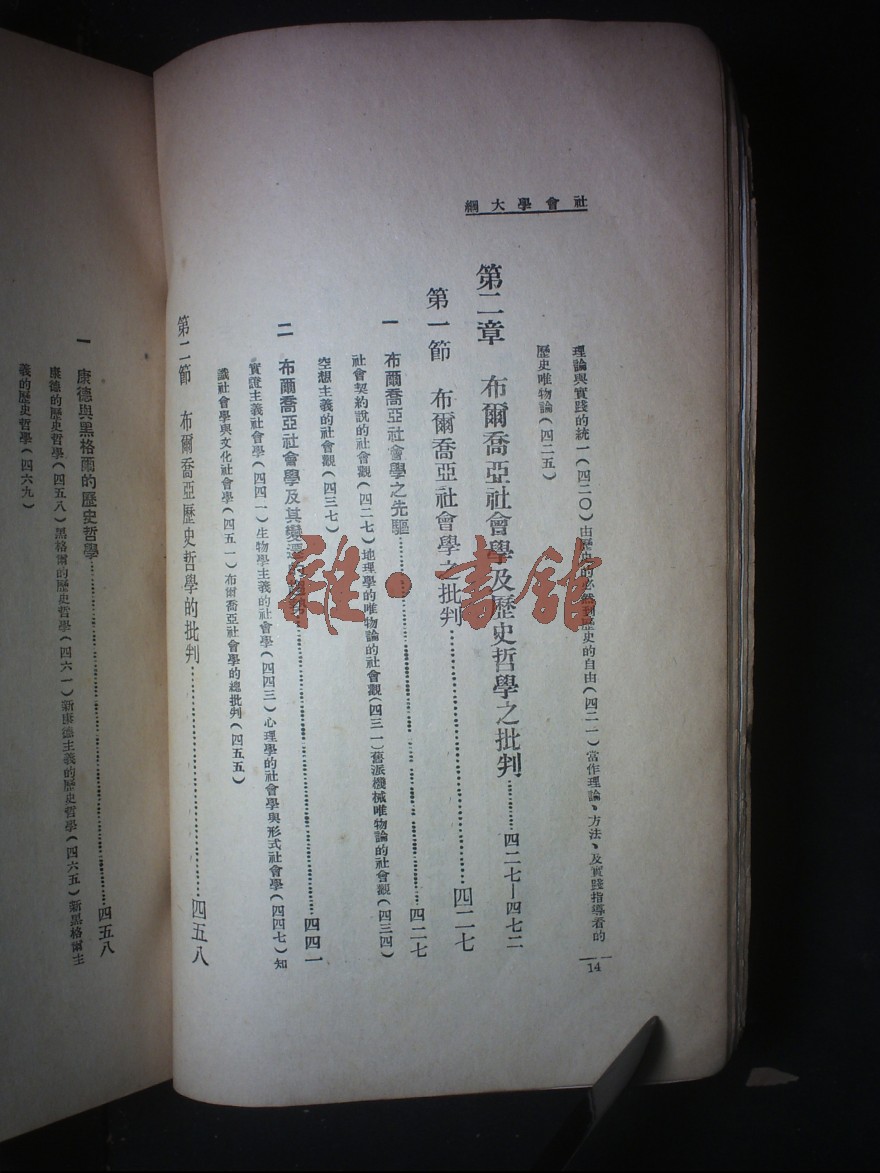 社會學大綱
理論與實踐的統一(四二〇)由歷史的必然到歷史的自由(四二一)當作理論、方法、及實踐指導者的
歷史唯物論(四二五)
第二章 布爾喬亞社會學及歷史哲學之批判…………四二七—四七二
第一節 布爾喬亞社會學之批判…………四二七
一 布爾喬亞社會學之先驅…………四二七
社會契約說的社會觀(四二七)地理學的唯物論的社會觀(四三一)舊派機械唯物論的社會觀(四三四)
空想主義的社會觀(四三七)
二 布爾喬亞社會學及其變遷的批判…………四四一
實證主義社會學(四四一)生物學主義的社會學(四四三)心理學的社會學與形式社會學(四四七)知
識社會學與文化社會學(四五一)布爾喬亞社會學的總批判(四五五)
第二節 布爾喬亞歷史哲學的批判…………四五八
14
一 康德與黑格爾的歷史哲學…………四五八
康德的歷史哲學(四五八)黑格爾的歷史哲學(四六一)新康德主義的歷史哲學(四六五)新黑格爾主
義的歷史哲學(四六九)
雜·書館